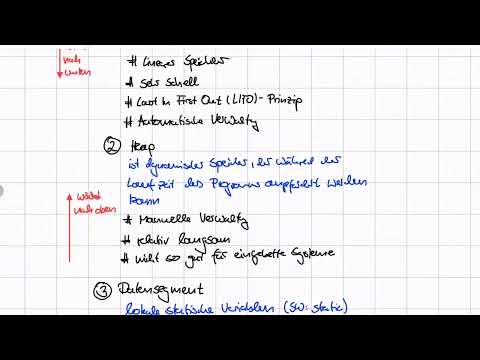 nach
unten
# Lineares Speicher
# Sehr Schnell
# Last In First Out (LIFO) - Prinzip
# Automatische Verwaltg
② Heap
ist dynamischer Speicher, der während der
Laufzeit des Programms angefordert werden
kann
wächst
nach oben
# Manuelle Verwaltg
# relativ langsam
# nicht so gut für eingebettete Systeme
③ Datensegment
lokale statische Variablen (SW: static)